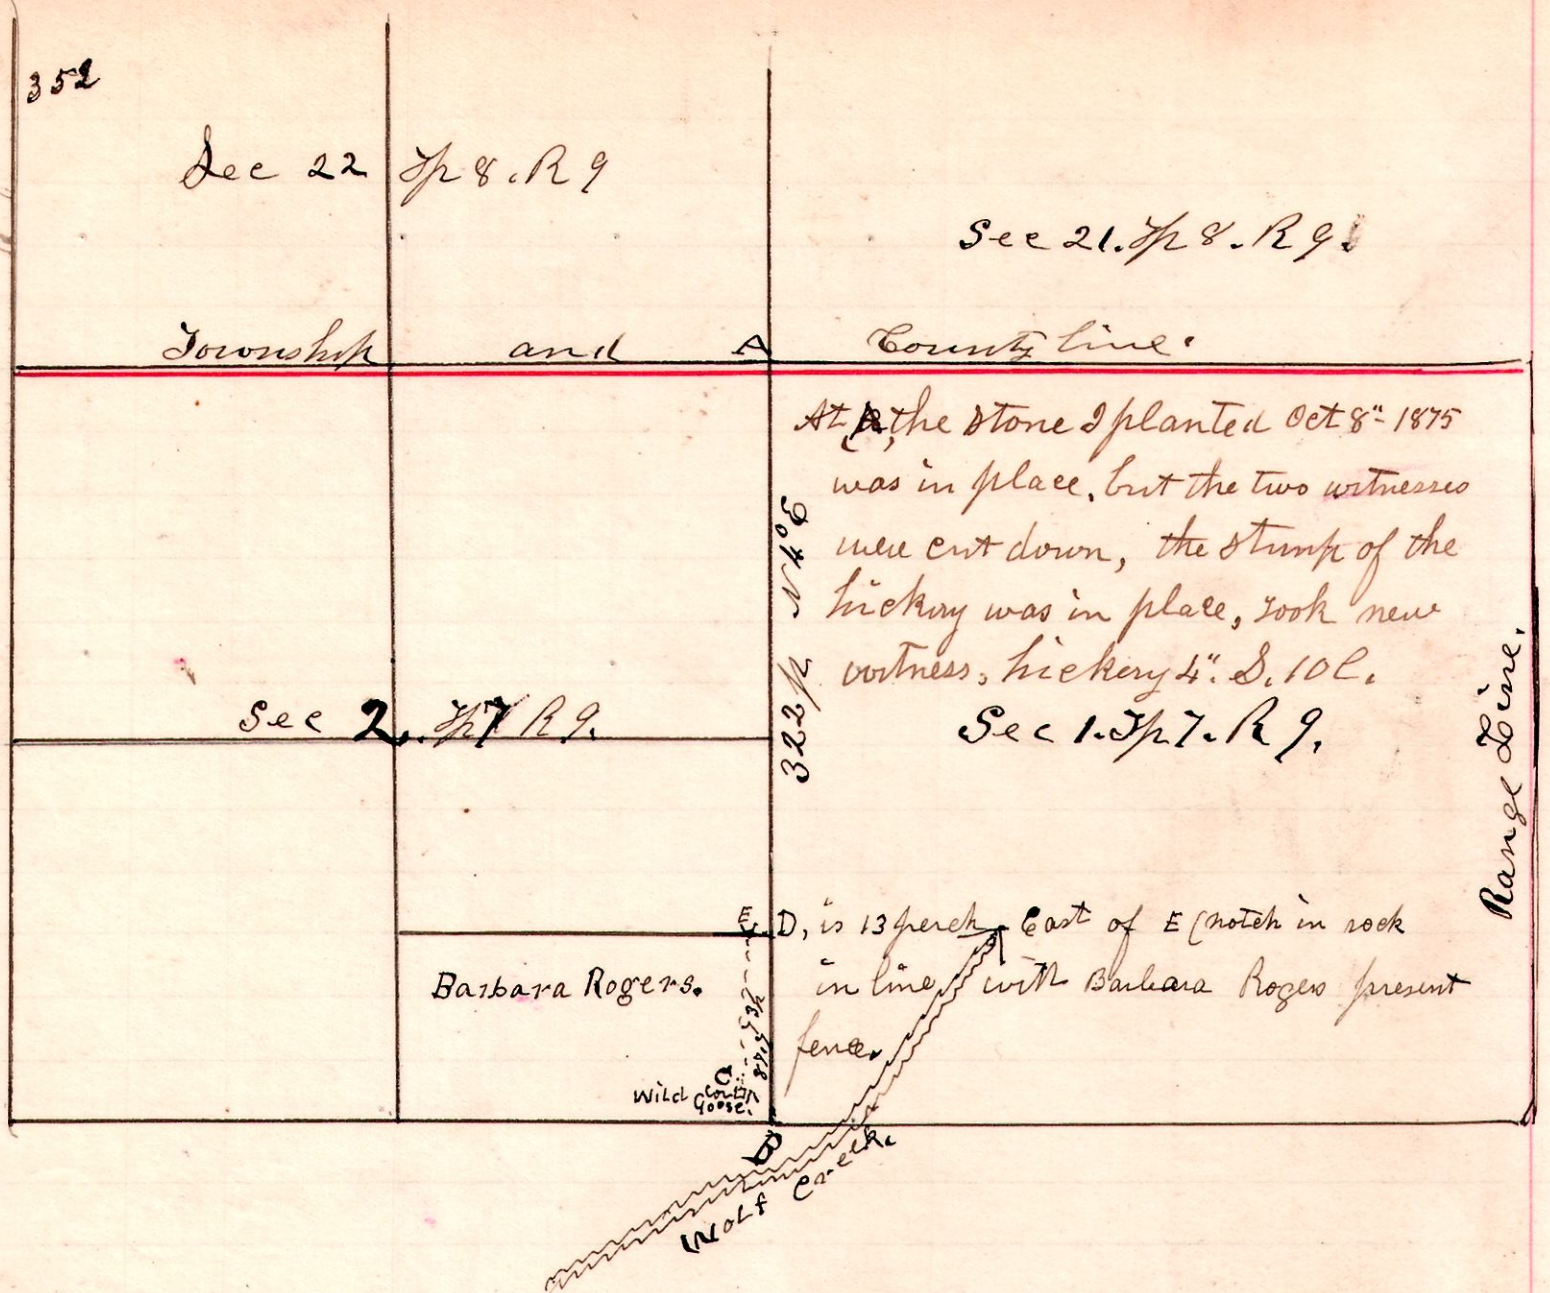 352
Sec 22 Tp 8. R 9
Sec 21. Tp 8. R 9.
Township and A County line.
At A, the stone I planted Oct 8" 1875
was in place, but the two witnesses
were cut down, the stump of the
hickory was in place, took new
witness, hickory 4". S. 10 L.
322 p N 4° E
Sec 2. Tp 7 R 9.
Sec 1. Tp 7. R 9.
Range Line.
E D, is 13 perch East of E (notch in rock
in line with Barbara Rogers present
fence.
Barbara Rogers.
C
Wild
Goose.
B
Wolf Creek.